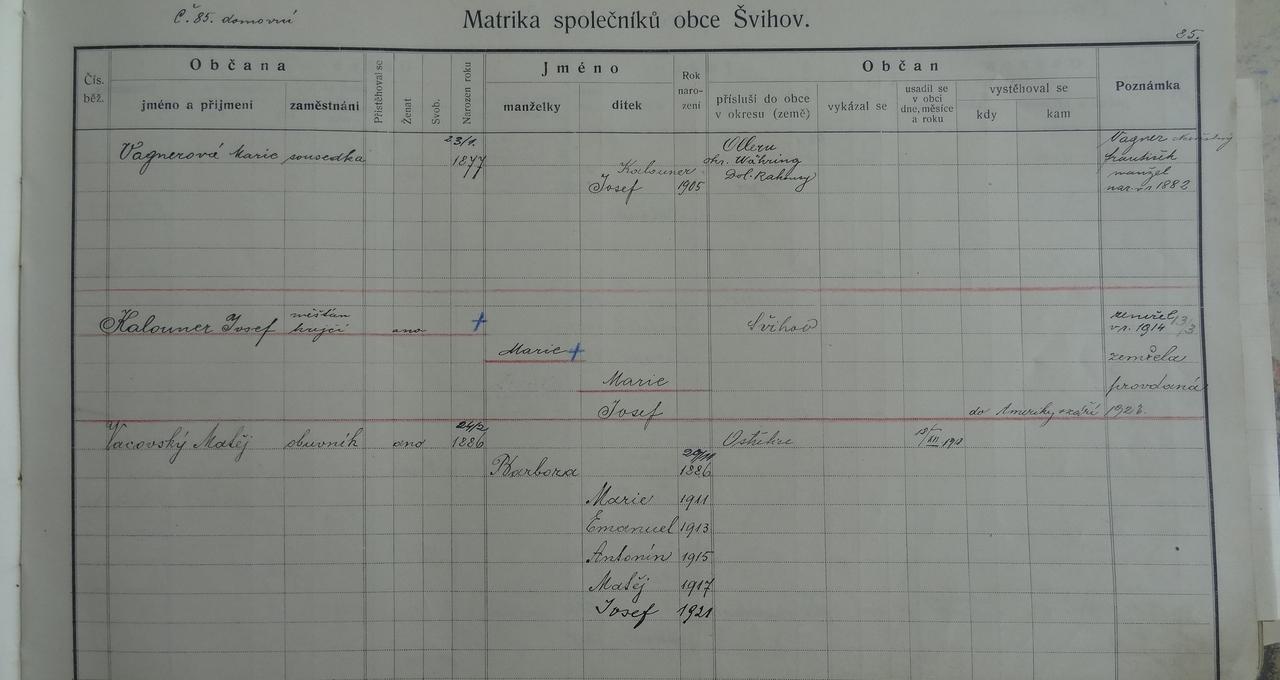 Č. 85. domovní
Matrika společníků obce Švihov.
85.
Čís. běž.
Občana
jméno a přijmení
zaměstnání
Přistěhoval se
Ženat
Svob.
Narozen roku
Jméno
manželky
dítek
Rok naro- zení
Občan
přísluší do obce v okresu (země)
vykázal se
usadil se v obci dne, měsíce a roku
vystěhoval se
kdy
kam
Poznámka
Vagnerová Marie sousedka 23/1. 1877
Kalouner
Josef 1905
okr. Währing
Dol. Rakousy
Vagner
František
manžel
nar. r. 1882
Kalouner Josef měšťan ano Švihov zemřel
v r. 1914
Marie zemřela
Marie provdaná
Josef do Ameriky září 1923.
Vacovský Matěj obuvník ano 24/2 1886
Barbora 1886
Marie 1911
Emanuel 1913
Antonín 1915
Matěj 1917
Josef 1921